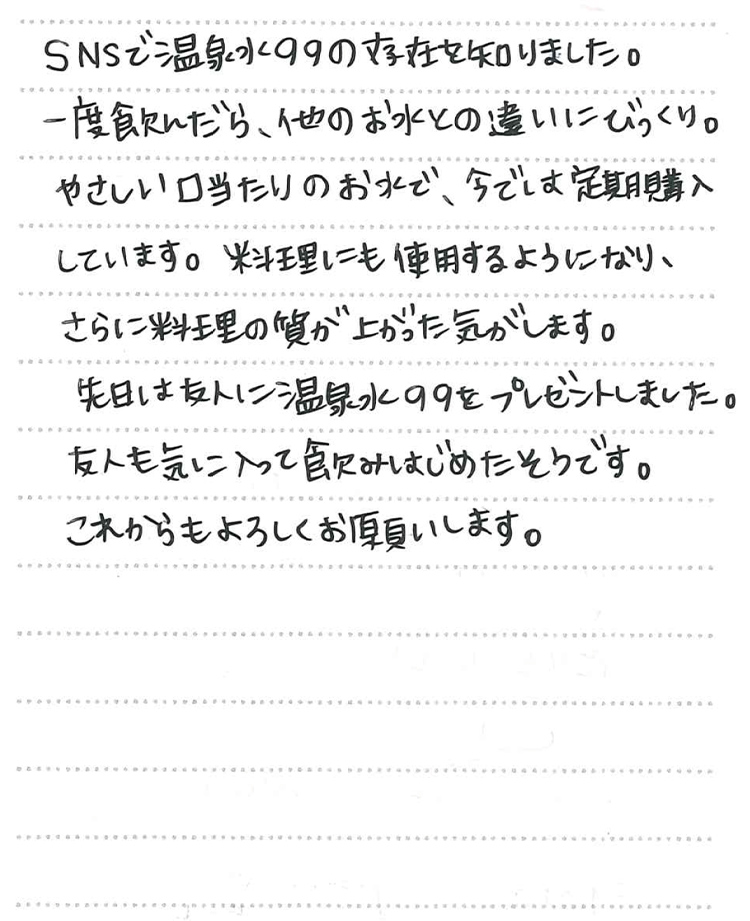 SNSで温泉水99の存在を知りました。
一度飲んだら、他のお水との違いにびっくり。
やさしい口当たりのお水で、今では定期購入
しています。料理にも使用するようになり、
さらに料理の質が上がった気がします。
先日は友人に温泉水99をプレゼントしました。
友人も気に入って飲みはじめたそうです。
これからもよろしくお願いします。